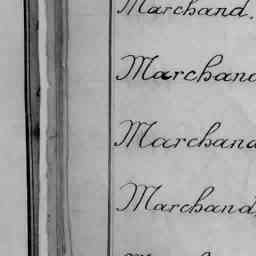 Marchand.
Marchand
Marchand
Marchand,